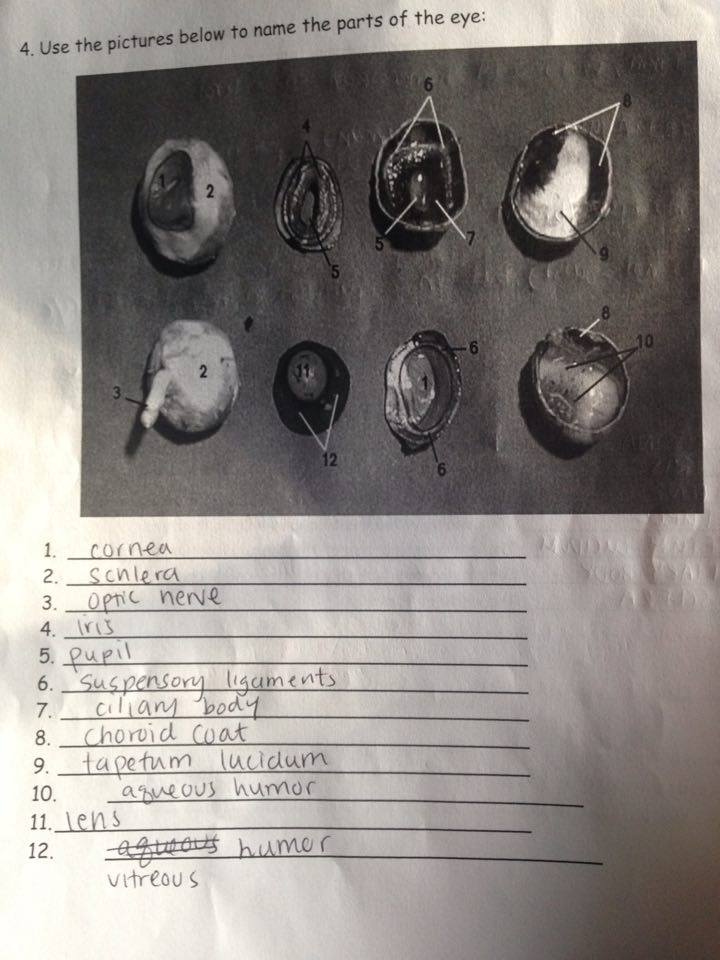 4. Use the pictures below to name the parts of the eye:
6
8
4
1
2
5
5
7
9
8
6
10
2
11
1
3
12
6
1. cornea
2. schlera
3. optic nerve
4. iris
5. pupil
6. suspensory ligaments
7. ciliary body
8. choroid coat
9. tapetum lucidum
10. aqueous humor
11. lens
12. aqueous humor
vitreous